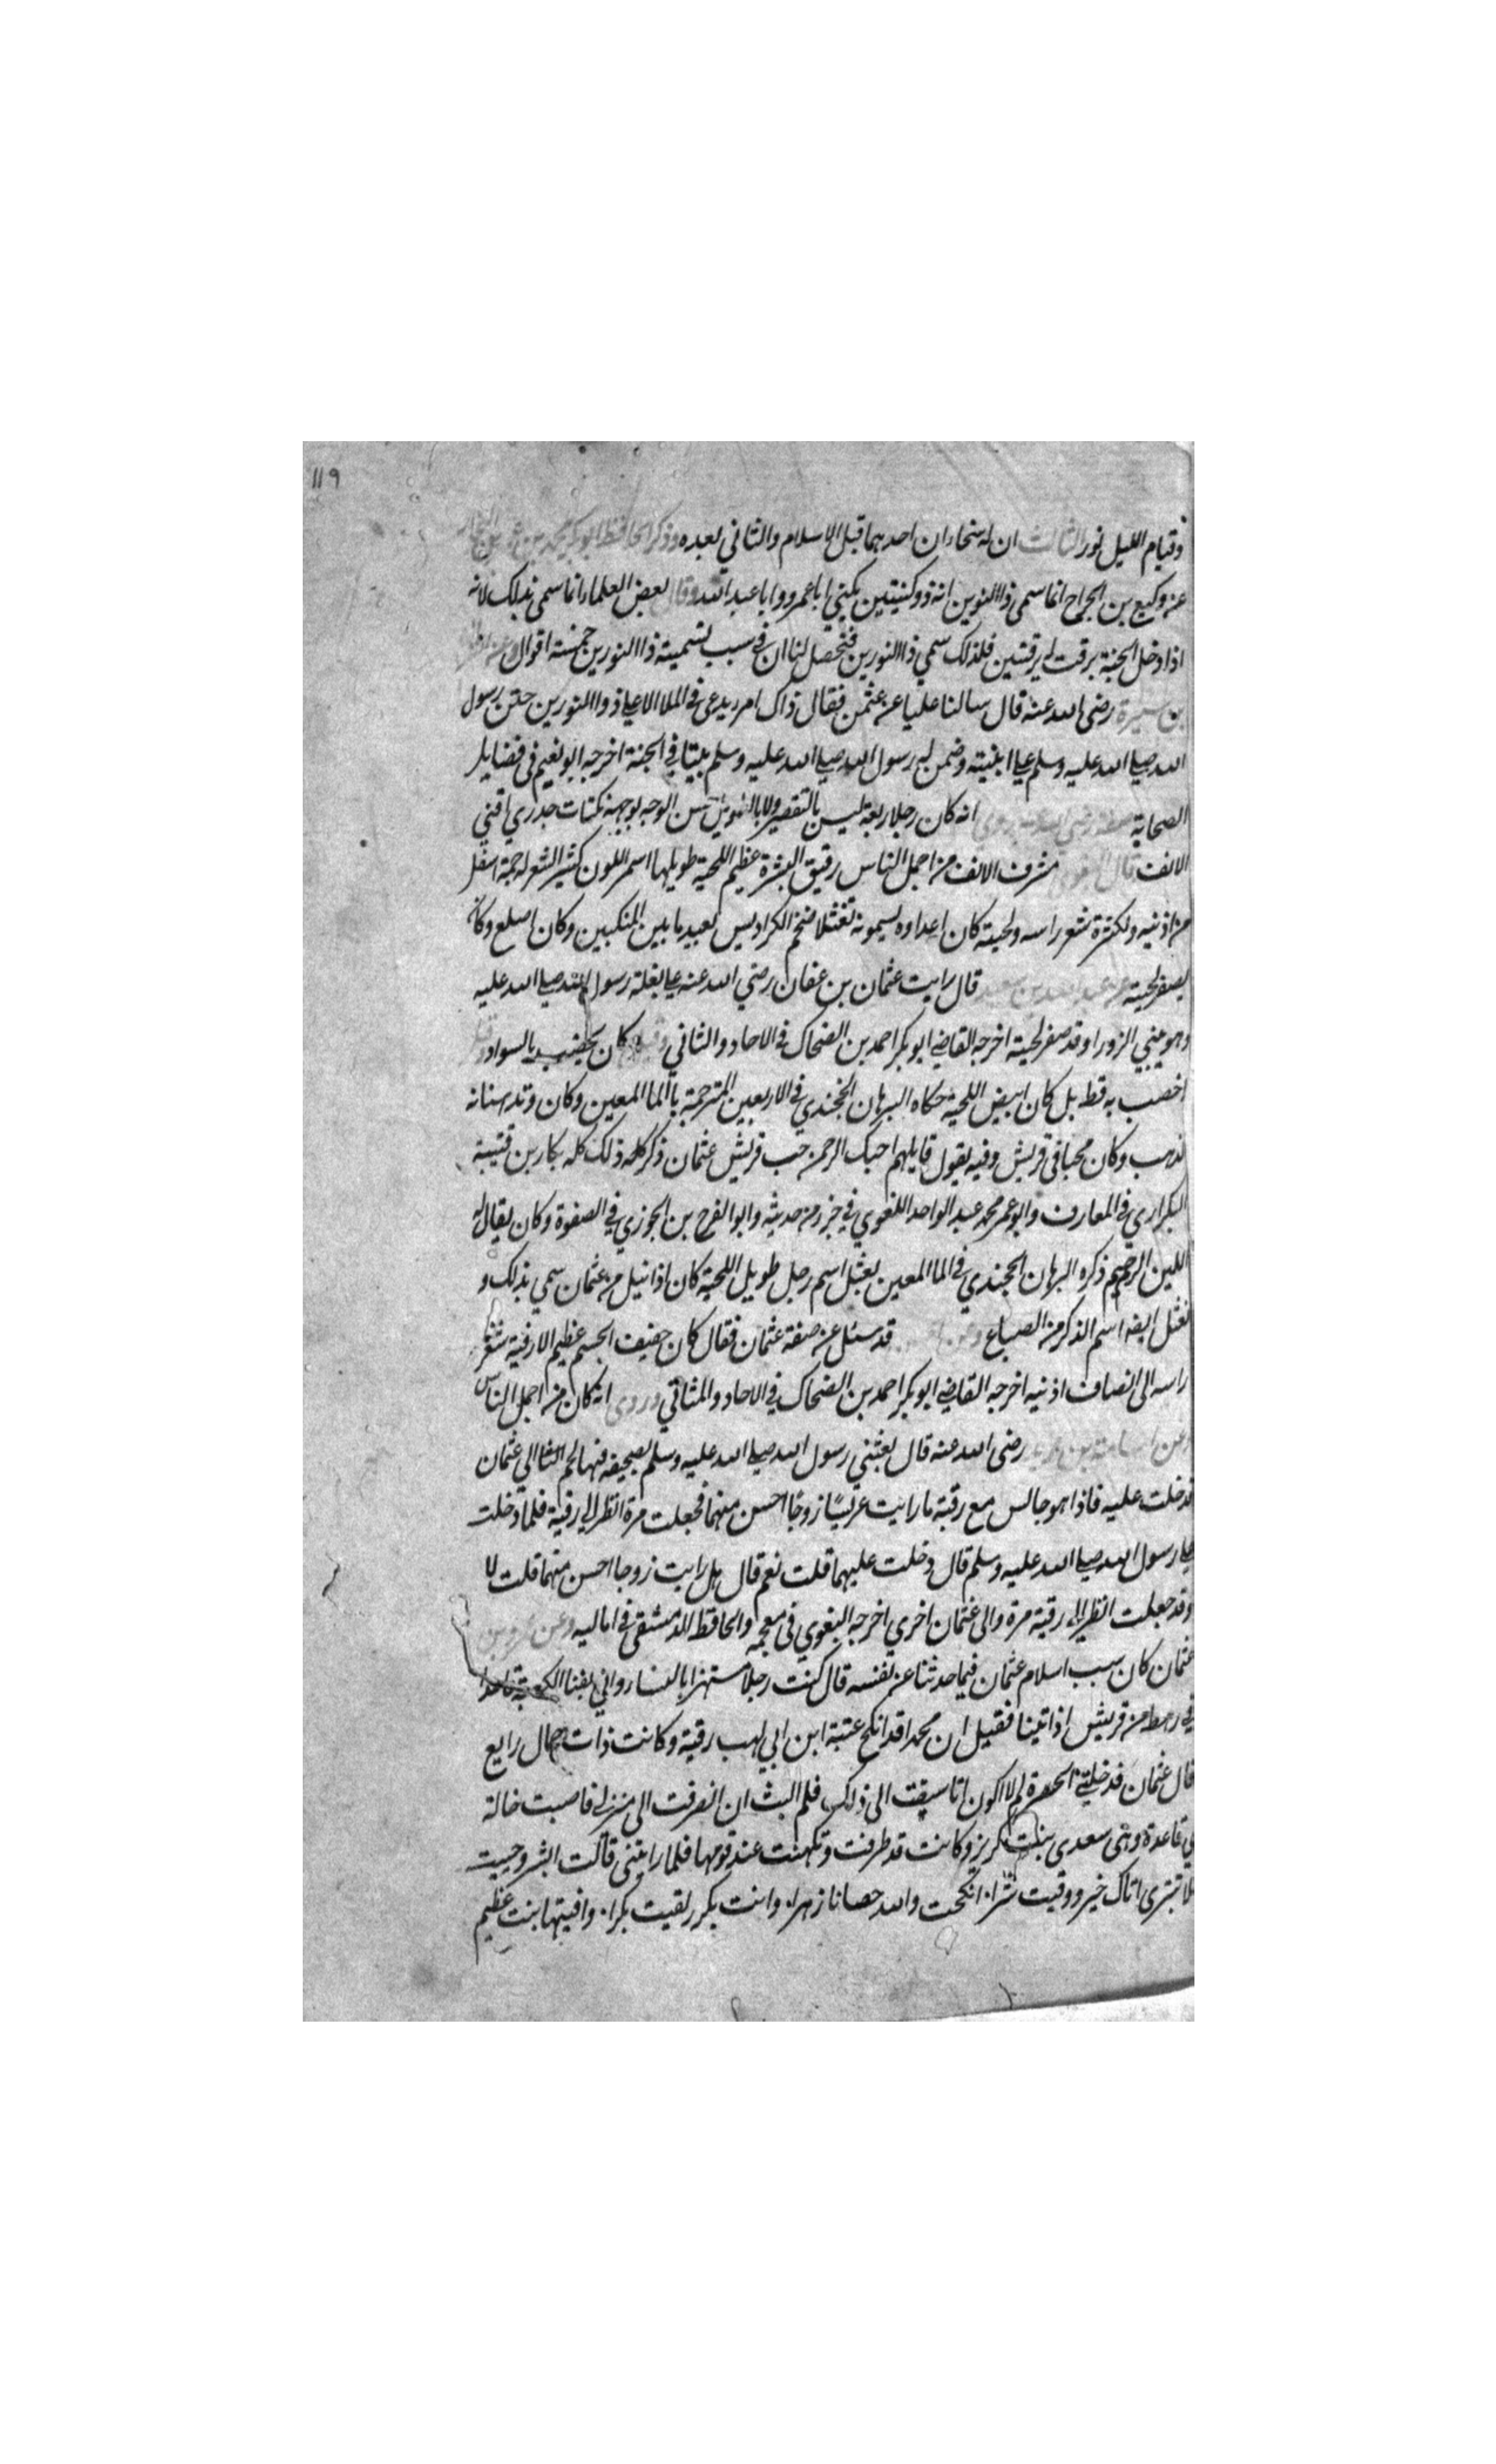 ١١٩
وقيام الليل نور الثالث ان له سخاءان احدهما قبل الاسلام والثاني بعده وذكر الحافظ ابو بكر محمد بن
عن وكيع بن الجراح انما سمى ذا النورين انه ذو كنيتين يكني ابا عمرو وابا عبد الله وقال بعض العلماء انما سمى بذلك لانه
اذا دخل الجنة برقت له برقتين فلذلك سمي ذا النورين فتحصل لنا ان في سبب تسميته ذا النورين خمسة اقوال وعن
بن سبرة رضى الله عنه قال سالنا عليا عن عثمن فقال ذاك امرء يدعى في الملا الاعلي ذوا النورين ختن رسول
الله صلي الله عليه وسلم علي ابنيته وضمن له رسول الله صلي الله عليه وسلم بيتا في الجنة اخرجه ابو نعيم في فضايل
الصحابة صفته رضي الله عنه يروى انه كان رجلا ربعة ليس بالقصير ولا بالطويل حسن الوجه بوجهه نكتات جدري اقني
الانف قال البغوي مشرف الانف من اجمل الناس رقيق البشرة عظيم اللحية طويلها اسمر اللون كثير الشعر له جمة اسفل
من اذنيه ولكثرة شعر راسه ولحيته كان اعداوه يسمونه نعثلا ضخم الكراديس بعيد ما بين المنكبين وكان اصلع وكان
يصفر لحيته عن عبد الله بن قال رايت عثمان بن عفان رضي الله عنه علي بغلة رسول الله صلي الله عليه
وهو يبني الزورا وقد صفر لحيته اخرجه القاضي ابو بكر احمد بن الضحاك في الاحاد والثاني وقيل كان يخضب بالسواد
اخضب به قط بل كان ابيض اللحية حكاه البرهان الخجندي في الاربعين المترجمة بالما المعين وكان وتد اسنانه
بذهب وكان محببا في قريش وفيه يقول قايلهم احبك الرحمن حب قريش عثمان ذكر كله ذلك كله بكار بن قتيبة
البكراوي في المعارف وابو عمر محمد عبد الواحد اللغوي في جزء من حديثه وابو الفرج بن الجوزي في الصفوة وكان يقال له
اللين الرحيم ذكره البرهان الخجندي في الما المعين نعثل اسم رجل طويل اللحية كان اذا نيل من عثمان سمي بذلك و
نعثل ايضا اسم الذكر من الضباع وعن قد سئل عن صفة عثمان فقال كان خفيف الجسم عظيم الارنبة شعر
راسه الى انصاف اذنيه اخرجه القاضي ابو بكر احمد بن الضحاك في الاحاد والمثاني وروى انه كان من اجمل الناس
وعن اسامة بن زيد رضى الله عنه قال بعثني رسول الله صلي الله عليه وسلم بصحيفة فيها لحم الي عثمان
فدخلت عليه فاذا هو جالس مع رقية ما رايت عريسا زوجا احسن منهما فجعلت مرة انظر الي رقية فلما دخلت
علي رسول الله صلي الله عليه وسلم قال دخلت عليهما قلت نعم قال هل رايت زوجا احسن منهما قلت لا
وقد جعلت انظر الي رقية مرة والى عثمان اخري اخرجه البغوي في معجمه والحافظ الدمشقى في اماليه وعن عمرو بن
عثمان كان سبب اسلام عثمان فيما حدثنا عن نفسه قال كنت رجلا مستهزا بالنسا واني بفنا الكعبة قاعدا
في رهط من قريش اذ اتينا فقيل ان محمدا قد انكح عتبة ابن ابي لهب رقية وكانت ذات جمال رايع
قال عثمان فدخلتني الحسرة لم لا اكون انا سبقت الى ذلك فلم البث ان انصرفت الى منزلي فاصبت خالة
لي قاعدة وهي سعدى بنت كريز وكانت قد طرفت وتكهنت عند قومها فلما راتني قالت ابشر وحييت
ثلا تترى اتاك خير ووقيت شرا انكحت والله حصانا زهرا وانت بكر ولقيت بكرا وافيتها بنت عظيم